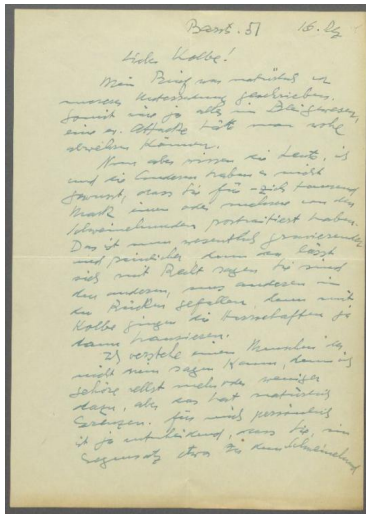 Basstr. 51 16. Dez
Lieber Kolbe!
Mein Brief was natürlich in
unserer geschrieben.
Somit wäre ja alles im
eine er. Attacke hätt man wohl
abwehren können.
Nun aber wissen die Leute, ich
und die Anderen haben es nicht
gewusst, dass Sie für zich tausend
Mark einen oder mehrere von den
Schweinehunden portraitiert haben.
Das ist nun wesentlich gravierender
und peinlicher, denn da lässt
sich mit Recht sagen Sie sind
den anderen, uns anderen in
den Rücken gefallen, denn mit
Kolbe gingen die ja
dann hausieren.
Ich verstehe einen Menschen der
nicht nein sagen kann, denn ich
gehöre selbst mehr oder weniger
dazu, aber das hat natürlich
Grenzen. Für mich persönlich
ist ja entscheidend, dass Sie, im
Gegensatz etwa zu dem Schweinehund